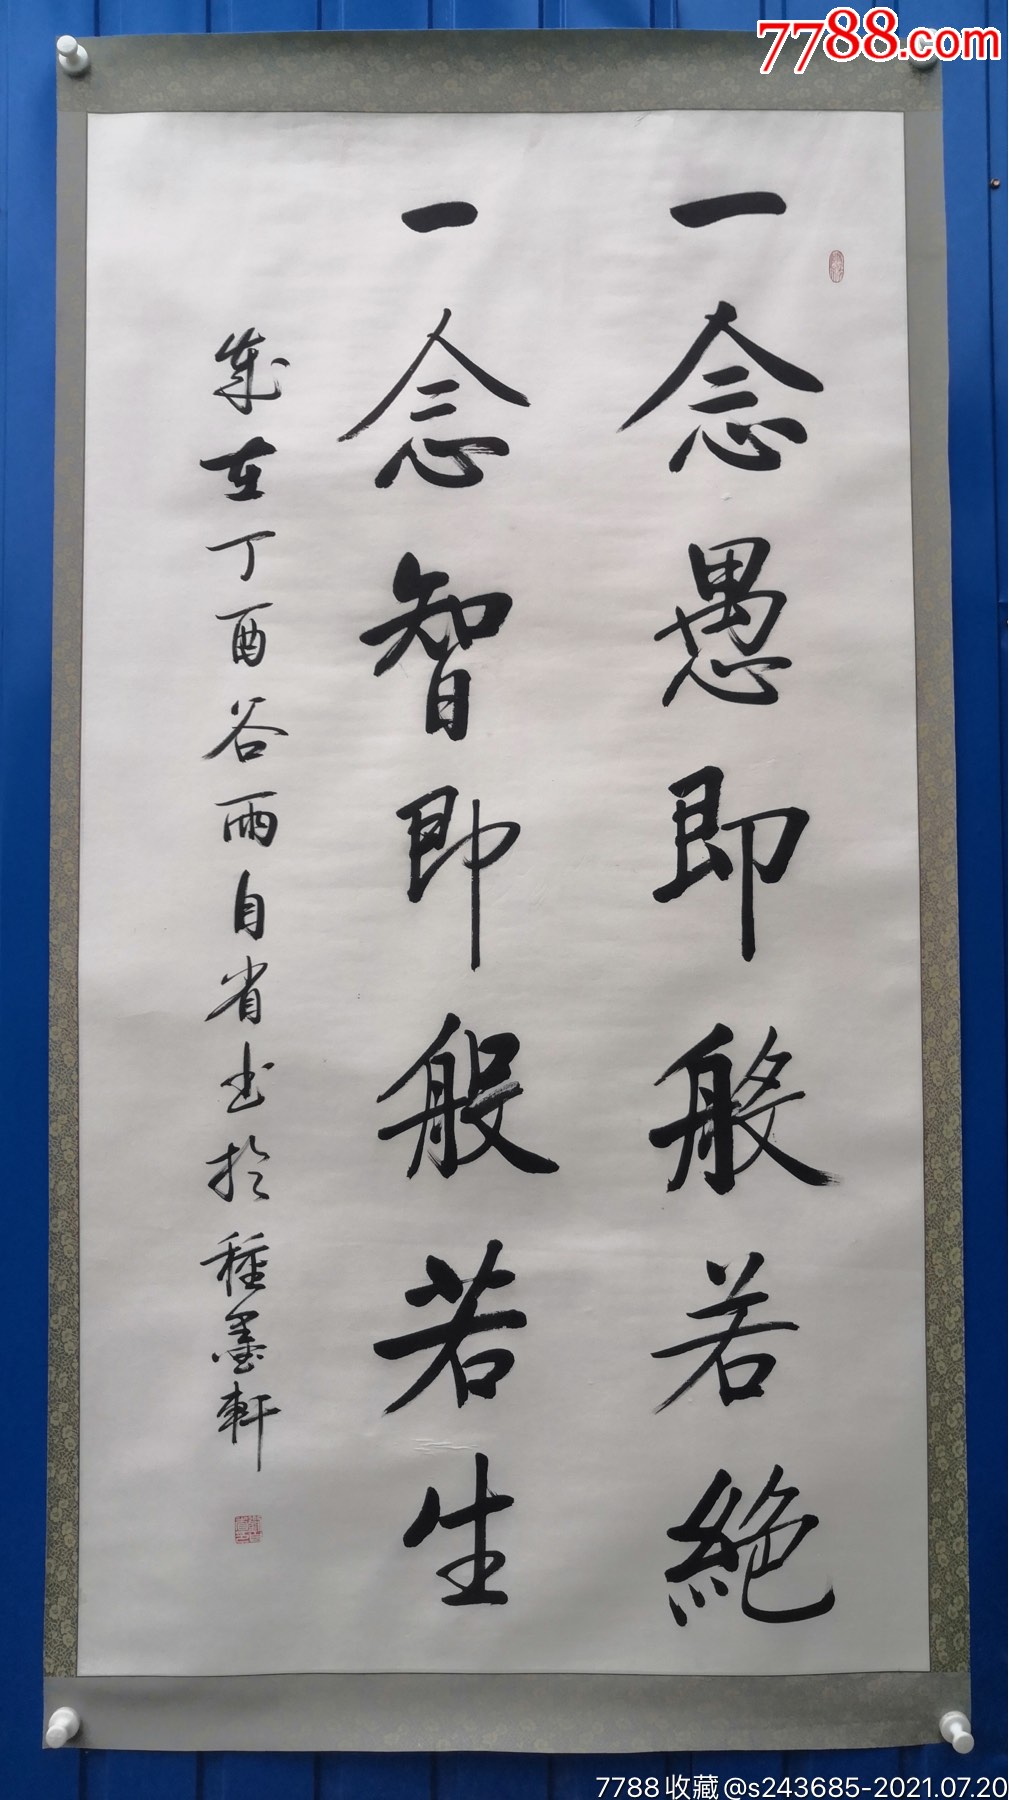 7788.com
一念愚即般若絶
一念智即般若生
歲在丁酉谷雨自省书於種墨軒
7788收藏@s243685-2021.07.20